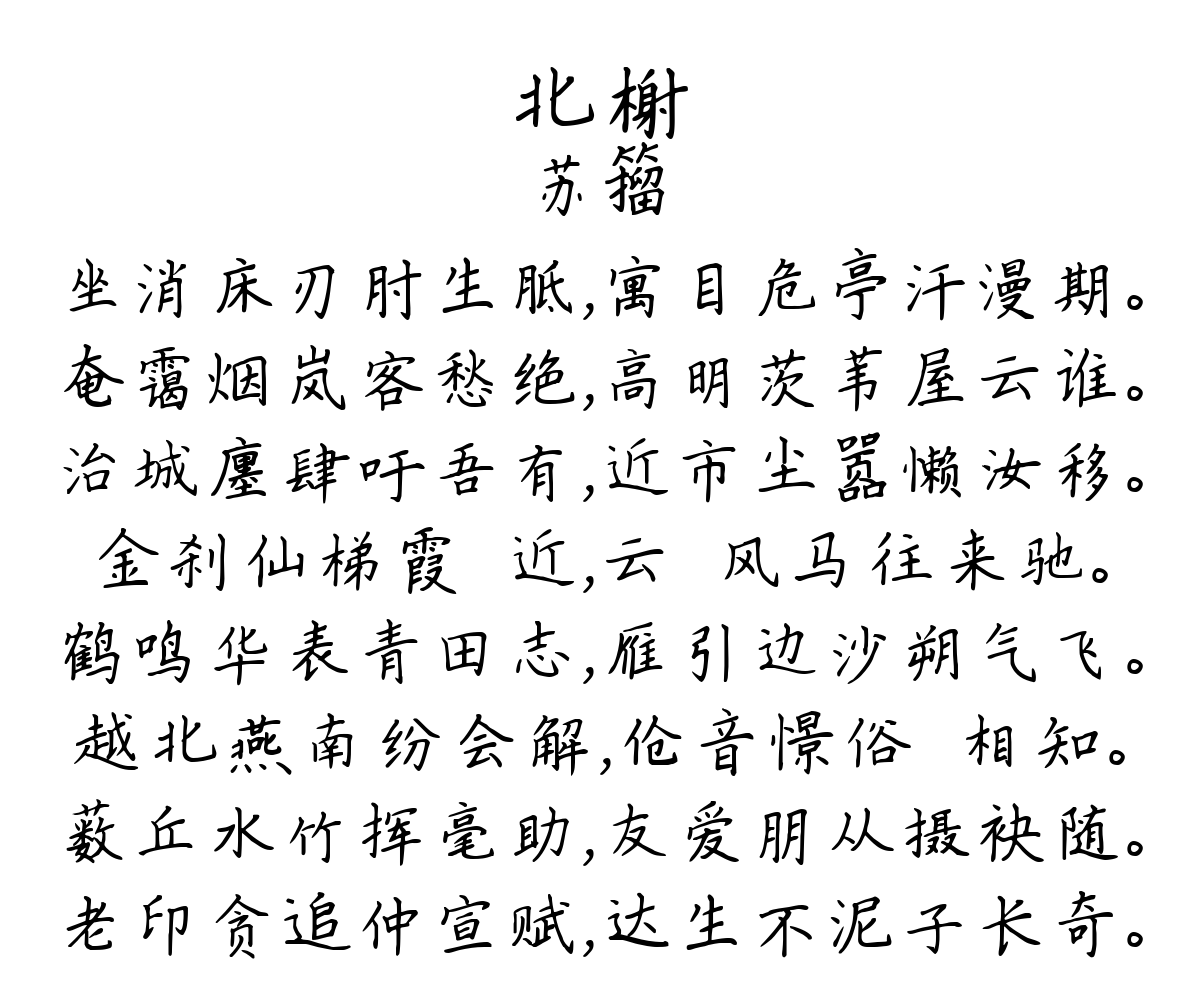 北榭
苏籀
坐消床刃肘生胝,寓目危亭汗漫期。
奄霭烟岚客愁绝,高明茨苇屋云谁。
治城廛肆吁吾有,近市尘嚣懒汝移。
金刹仙梯霞 近,云 风马往来驰。
鹤鸣华表青田志,雁引边沙朔气飞。
越北燕南纷会解,伧音憬俗 相知。
薮丘水竹挥毫助,友爱朋从摄袂随。
老印贪追仲宣赋,达生不泥子长奇。